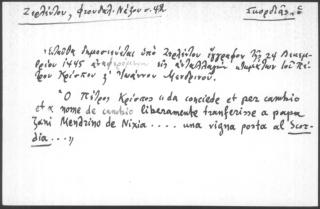 Ζερλέντου, Φεουδαλ. Νάξου σ. 42 Σκορδιάς ὁ
Ἐνταῦθα δημοσιεύεται ὑπὸ Ζερλέντου ἔγγραφον τῆς 24 Δεκεμ-
βρίου 1445 ἀναφερόμενον εἰς ἀνταλλαγὴν κτημάτων τοῦ Πέ-
τρου Κρίσπου & Ἰωάννου Μενδρινοῦ.
"Ὁ Πέτρος Κρίσπος «da conciede et per cambio
et a nome de cambio liberamente tranferisse a papa
zani Mendrino de Nixia .... una vigna posta al Scor-
dia ...»